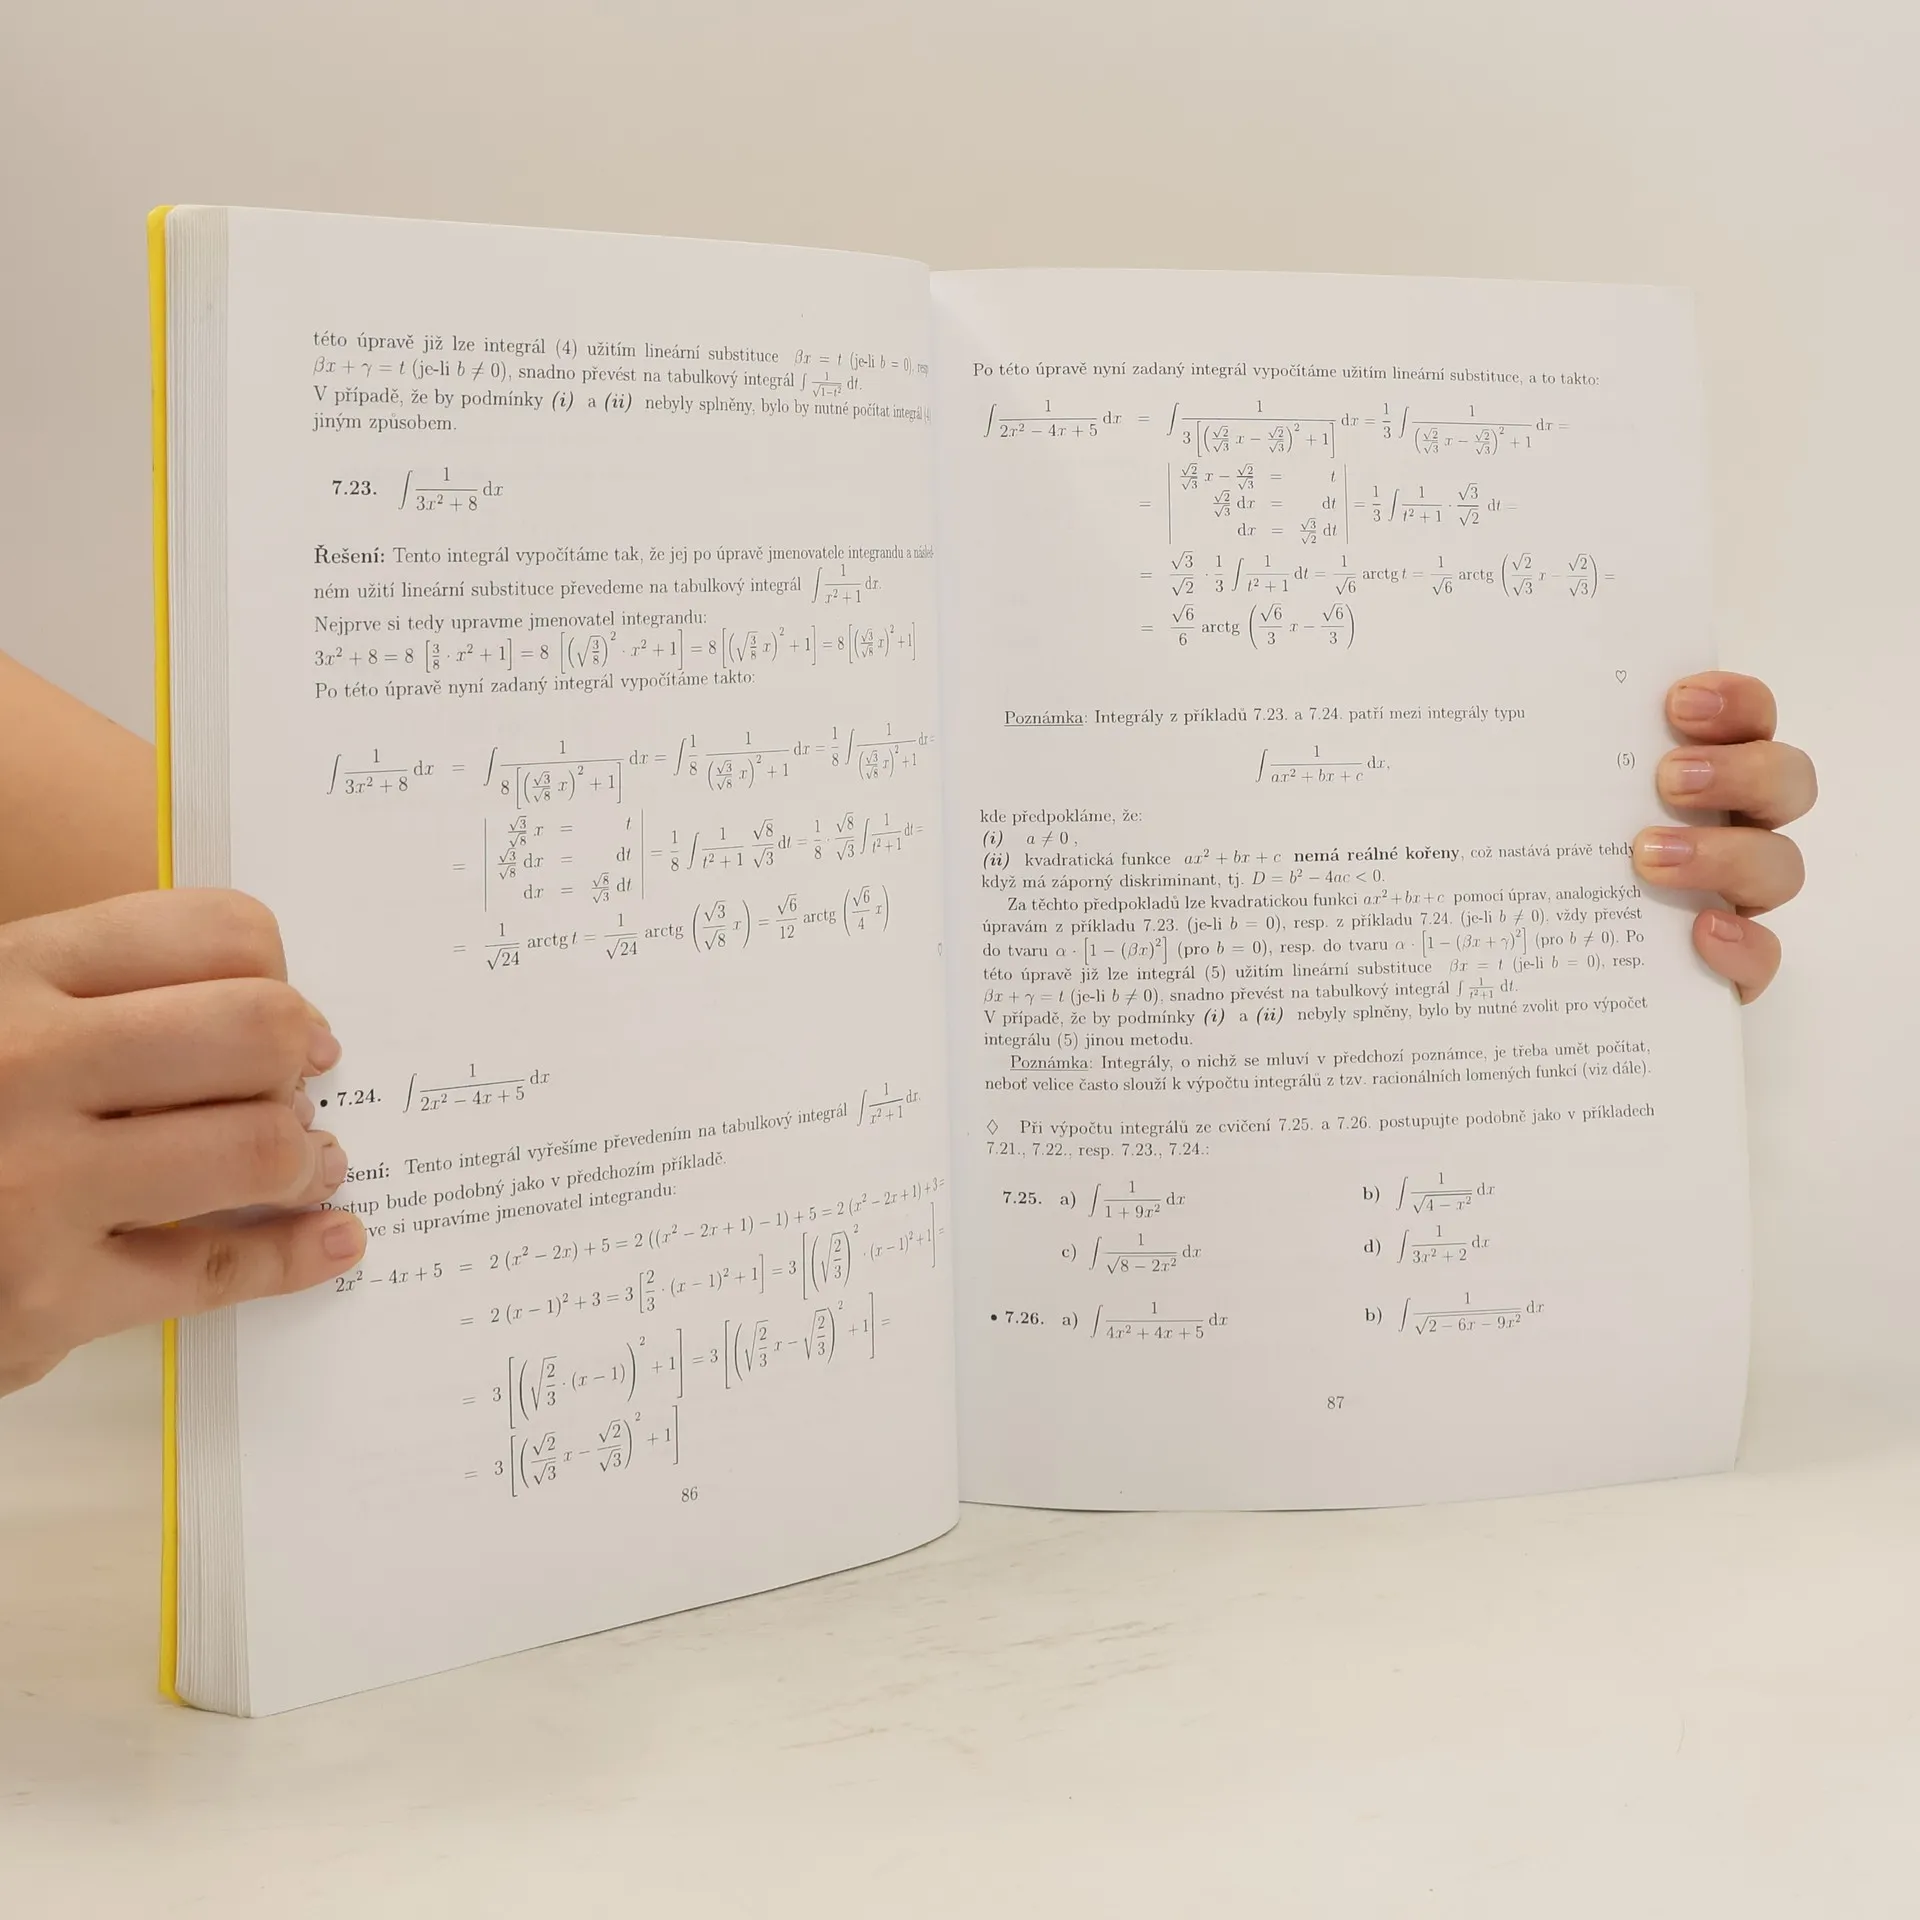 této úpravě již lze integrál (4) užitím lineární substituce βx = t (je-li b = 0), resp.
βx + γ = t (je-li b ≠ 0), snadno převést na tabulkový integrál ∫ 1/√(1−t²) dt.
V případě, že by podmínky (i) a (ii) nebyly splněny, bylo by nutné počítat integrál (4)
jiným způsobem.
7.23. ∫ 1/(3x² + 8) dx
Řešení: Tento integrál vypočítáme tak, že jej po úpravě jmenovatele integrandu a
ném užití lineární substituce převedeme na tabulkový integrál ∫ 1/(x² + 1) dx.
Nejprve si tedy upravme jmenovatel integrandu:
3x² + 8 = 8 [3/8 · x² + 1] = 8 [(√(3/8))² · x² + 1] = 8 [(√(3/8) x)² + 1] = 8 [(√3/√8 x)² + 1]
Po této úpravě nyní zadaný integrál vypočítáme takto:
∫ 1/(3x² + 8) dx = ∫ 1/(8 [(√3/√8 x)² + 1]) dx = ∫ 1/8 1/((√3/√8 x)² + 1) dx = 1/8 ∫ 1/((√3/√8 x)² + 1) dx =
= | √3/√8 x = t
√3/√8 dx = dt
dx = √8/√3 dt | = 1/8 ∫ 1/(t² + 1) √8/√3 dt = 1/8 · √8/√3 ∫ 1/(t² + 1) dt =
= 1/√24 arctg t = 1/√24 arctg (√3/√8 x) = √6/12 arctg (√6/4 x)
♡
• 7.24. ∫ 1/(2x² − 4x + 5) dx
šení: Tento integrál vyřešíme převedením na tabulkový integrál ∫ 1/(x² + 1) dx.
Postup bude podobný jako v předchozím příkladě.
ve si upravíme jmenovatel integrandu:
2x² − 4x + 5 = 2 (x² − 2x) + 5 = 2 ((x² − 2x + 1) − 1) + 5 = 2 (x² − 2x + 1) + 3 =
= 2 (x − 1)² + 3 = 3 [2/3 · (x − 1)² + 1] = 3 [(√(2/3))² · (x − 1)² + 1] =
= 3 [(√(2/3) · (x − 1))² + 1] = 3 [(√(2/3) x − √(2/3))² + 1] =
= 3 [(√2/√3 x − √2/√3)² + 1]
86
Po této úpravě nyní zadaný integrál vypočítáme užitím lineární substituce, a to takto:
∫ 1/(2x² − 4x + 5) dx = ∫ 1/(3 [(√2/√3 x − √2/√3)² + 1]) dx = 1/3 ∫ 1/((√2/√3 x − √2/√3)² + 1) dx =
= | √2/√3 x − √2/√3 = t
√2/√3 dx = dt
dx = √3/√2 dt | = 1/3 ∫ 1/(t² + 1) · √3/√2 dt =
= √3/√2 · 1/3 ∫ 1/(t² + 1) dt = 1/√6 arctg t = 1/√6 arctg (√2/√3 x − √2/√3) =
= √6/6 arctg (√6/3 x − √6/3)
♡
Poznámka: Integrály z příkladů 7.23. a 7.24. patří mezi integrály typu
∫ 1/(ax² + bx + c) dx, (5)
kde předpokládáme, že:
(i) a ≠ 0 ,
(ii) kvadratická funkce ax² + bx + c nemá reálné kořeny, což nastává právě tehdy
když má záporný diskriminant, tj. D = b² − 4ac < 0.
Za těchto předpokladů lze kvadratickou funkci ax² + bx + c pomocí úprav, analogických
úpravám z příkladu 7.23. (je-li b = 0), resp. z příkladu 7.24. (je-li b ≠ 0), vždy převést
do tvaru α · [1 − (βx)²] (pro b = 0), resp. do tvaru α · [1 − (βx + γ)²] (pro b ≠ 0). Po
této úpravě již lze integrál (5) užitím lineární substituce βx = t (je-li b = 0), resp.
βx + γ = t (je-li b ≠ 0), snadno převést na tabulkový integrál ∫ 1/(t²+1) dt.
V případě, že by podmínky (i) a (ii) nebyly splněny, bylo by nutné zvolit pro výpočet
integrálu (5) jinou metodu.
Poznámka: Integrály, o nichž se mluví v předchozí poznámce, je třeba umět počítat,
neboť velice často slouží k výpočtu integrálů z tzv. racionálních lomených funkcí (viz dále).
◊ Při výpočtu integrálů ze cvičení 7.25. a 7.26. postupujte podobně jako v příkladech
7.21., 7.22., resp. 7.23., 7.24.:
7.25. a) ∫ 1/(1 + 9x²) dx b) ∫ 1/√(4 − x²) dx
c) ∫ 1/√(8 − 2x²) dx d) ∫ 1/(3x² + 2) dx
• 7.26. a) ∫ 1/(4x² + 4x + 5) dx b) ∫ 1/√(2 − 6x − 9x²) dx
87